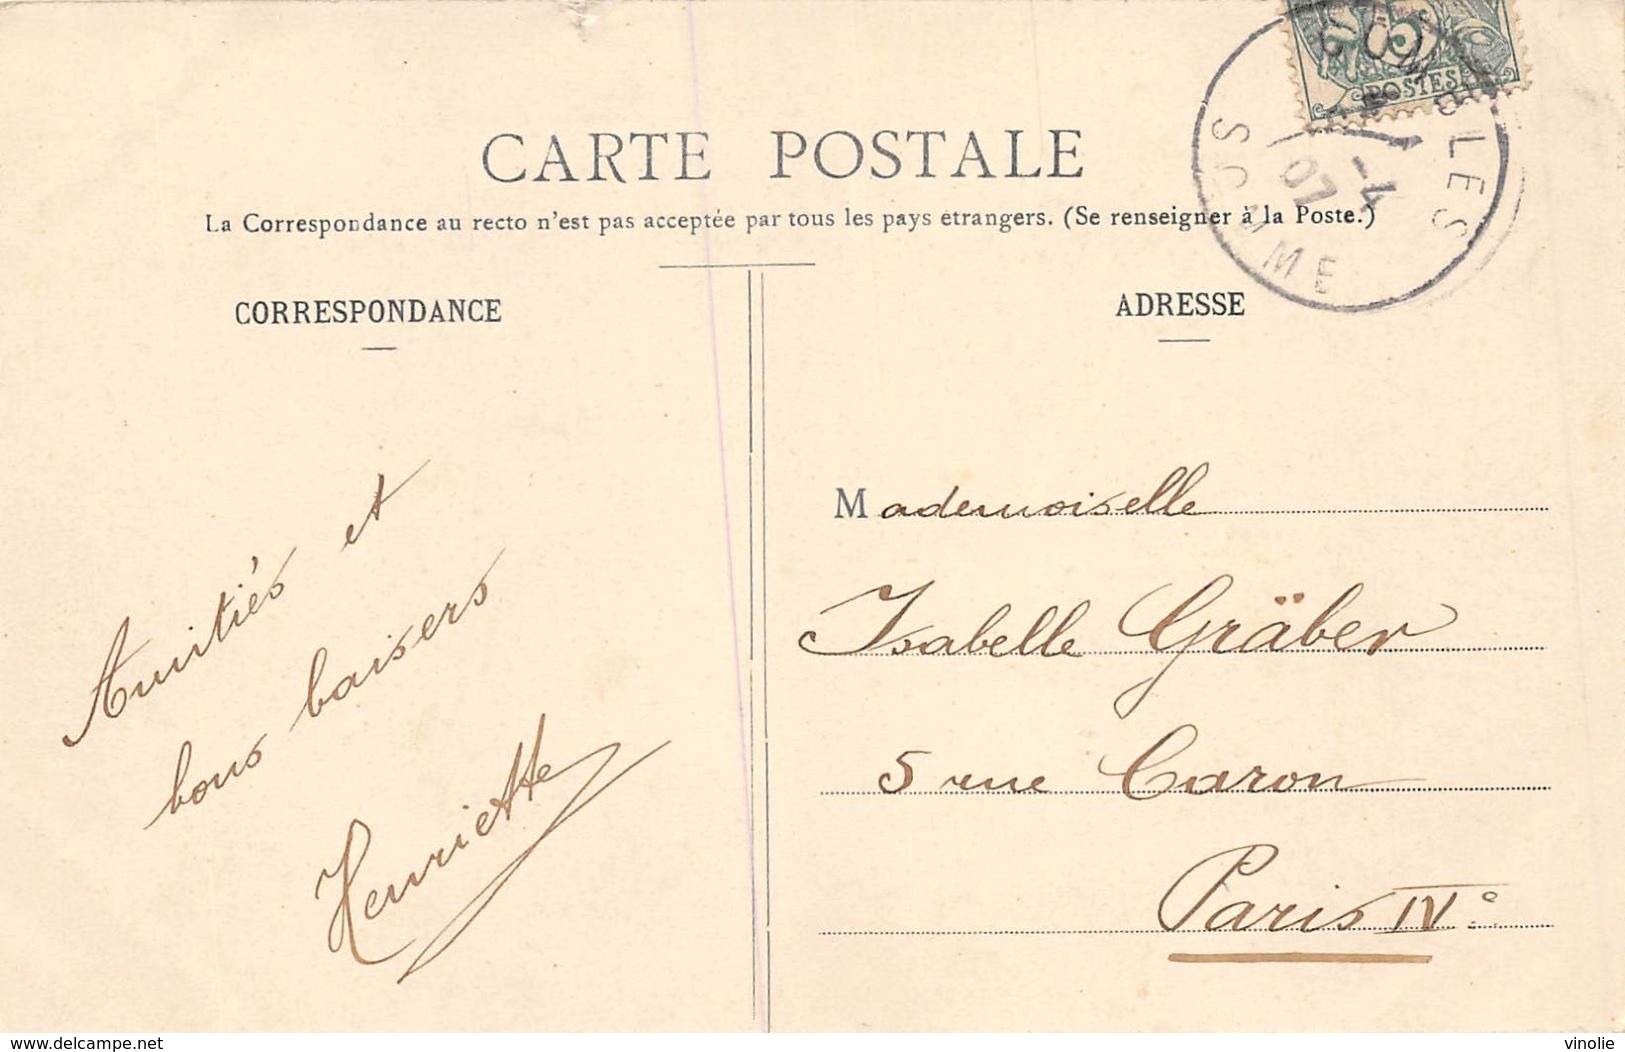 CARTE POSTALE
La Correspondance au recto n'est pas acceptée par tous les pays étrangers. (Se renseigner à la Poste.)
CORRESPONDANCE
ADRESSE
Amitiés et
bons baisers
Henriette
Mademoiselle
Isabelle Gräber
5 rue Caron
Paris IVe
5
POSTES
COMBLES
-4
07
SOMME
www.delcampe.net
vinolie